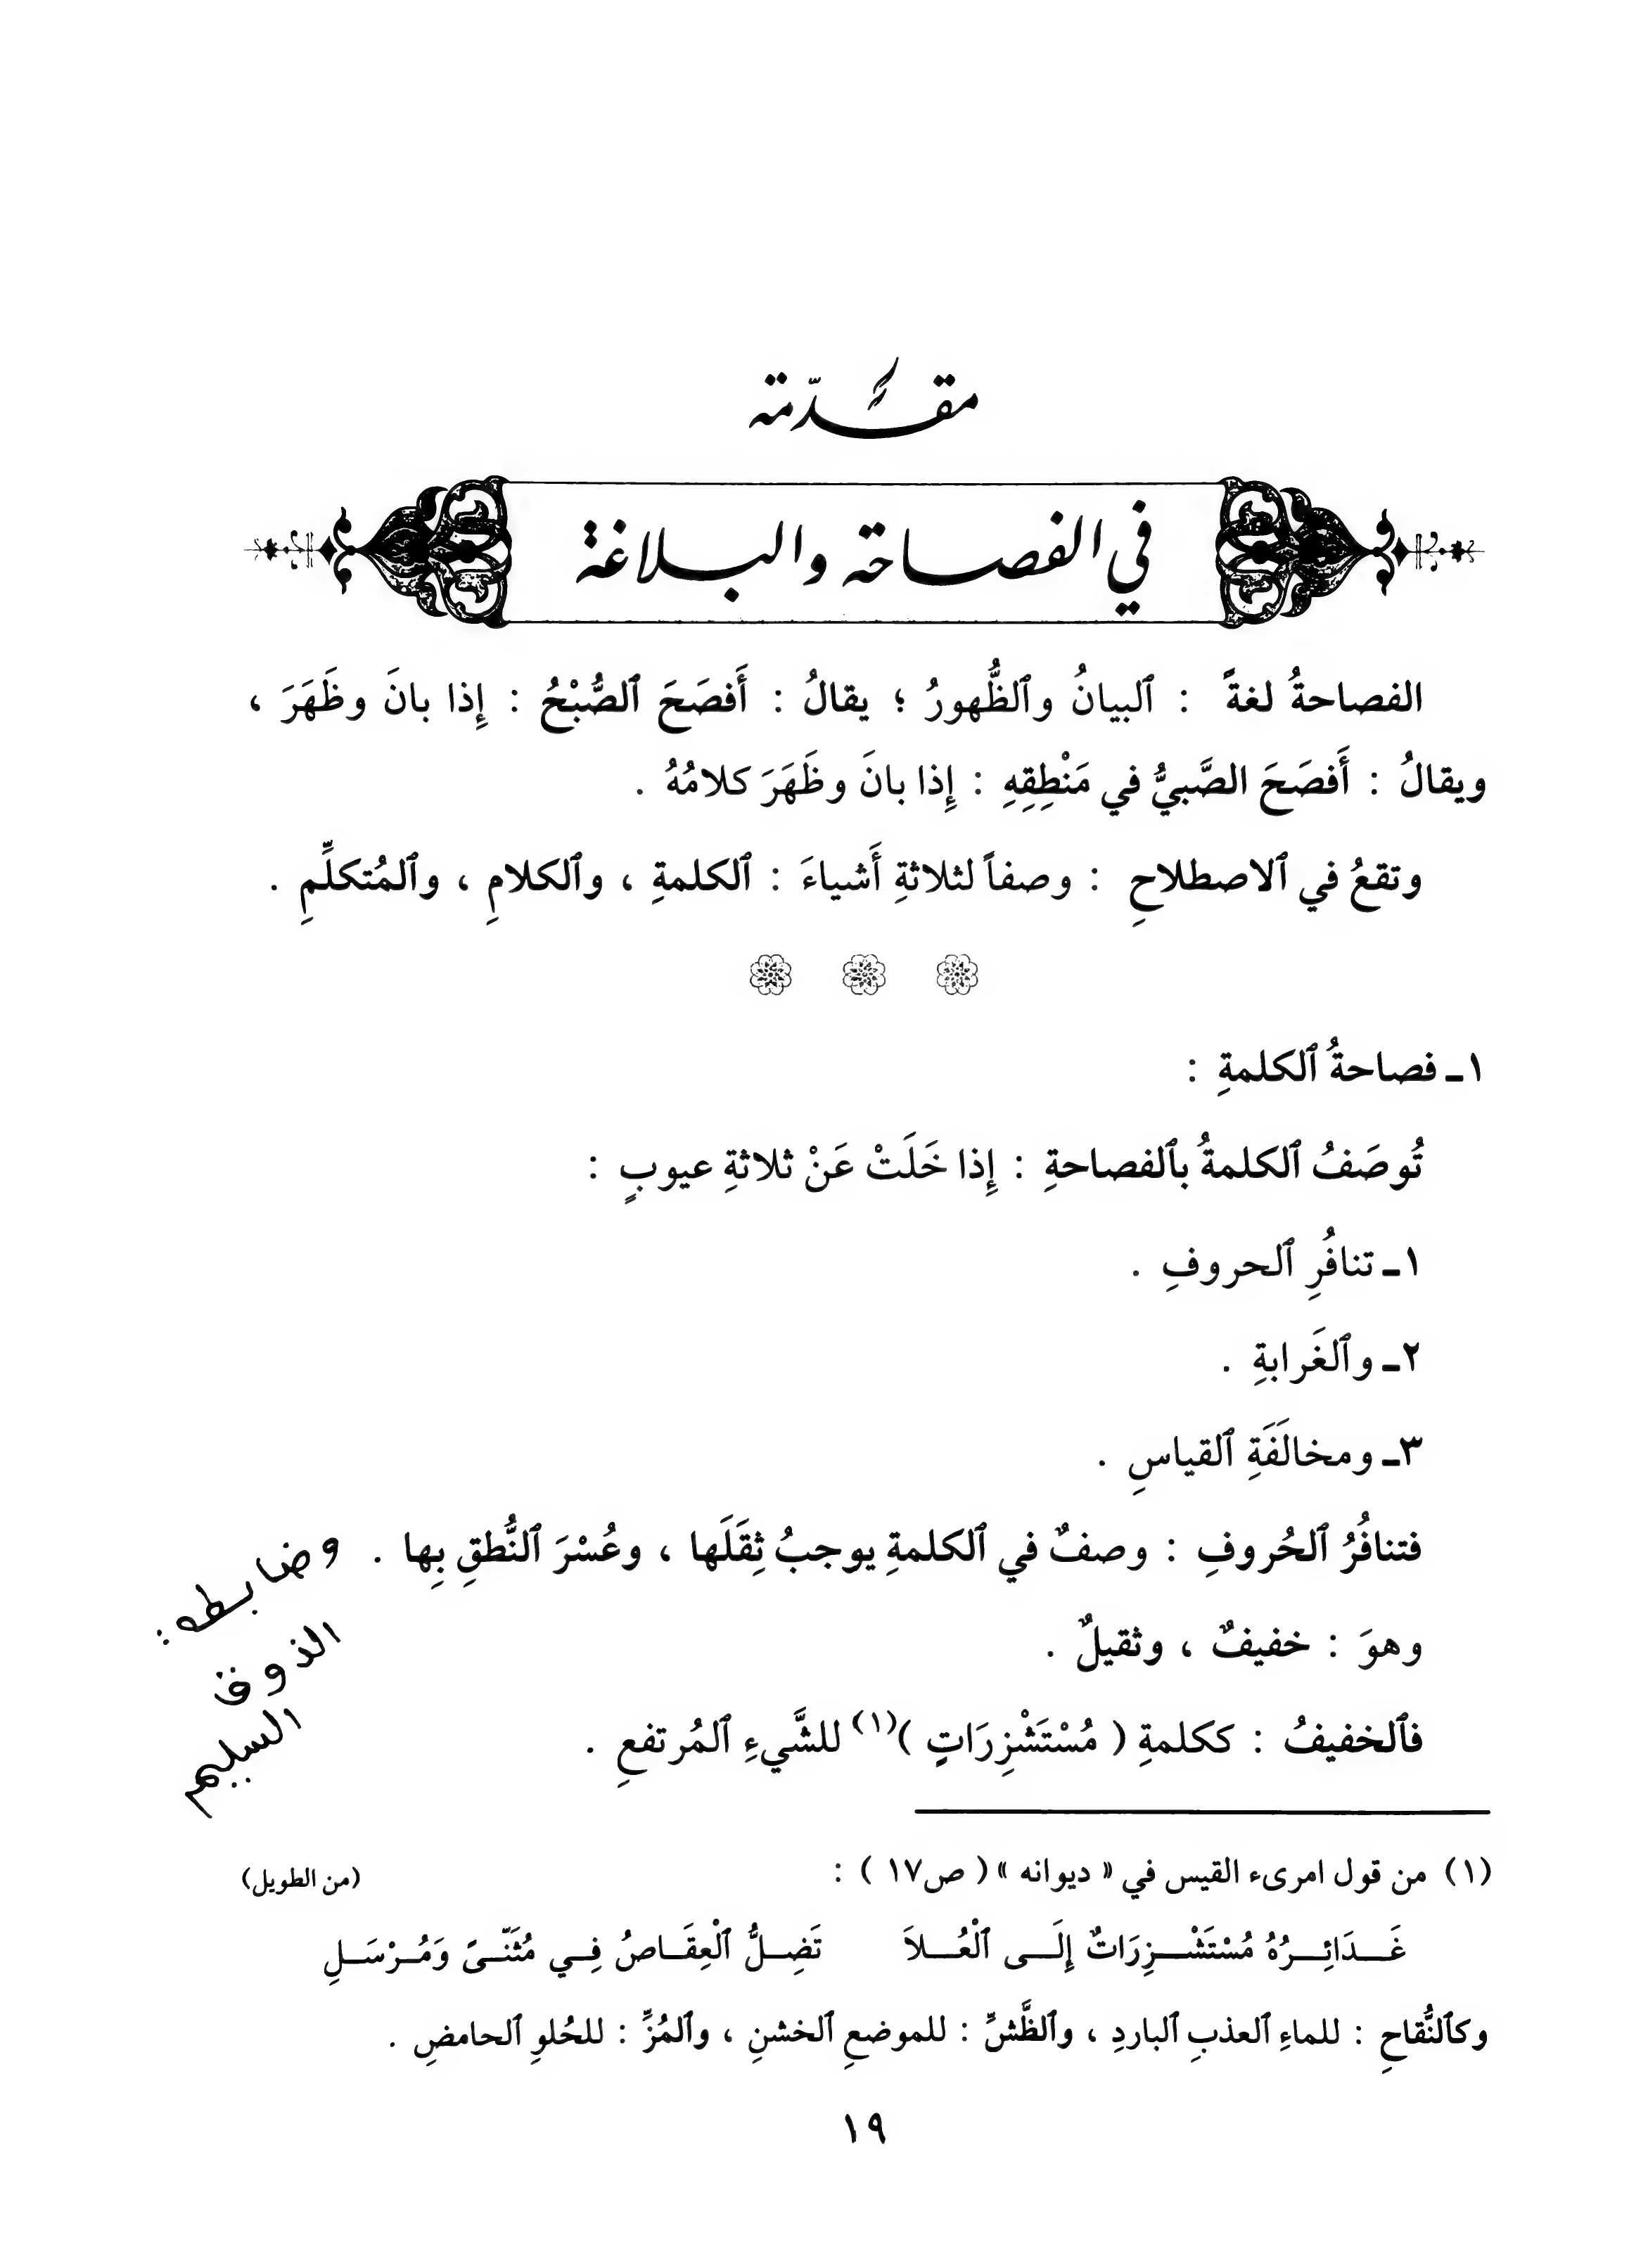 مقدّمة
في الفصاحة والبلاغة
الفصاحةُ لغةً : ٱلبيانُ وٱلظُّهورُ ؛ يقالُ : أَفصَحَ ٱلصُّبْحُ : إِذا بانَ وظَهَرَ ،
ويقالُ : أَفصَحَ الصَّبيُّ في مَنْطِقِهِ : إِذا بانَ وظَهَرَ كلامُهُ .
وتقعُ في ٱلاصطلاحِ : وصفاً لثلاثةِ أَشياءَ : ٱلكلمةِ ، وٱلكلامِ ، وٱلمُتكلِّمِ .
١ـ فصاحةُ ٱلكلمةِ :
تُوصَفُ ٱلكلمةُ بٱلفصاحةِ : إِذا خَلَتْ عَنْ ثلاثةِ عيوبٍ :
١ـ تنافُرِ ٱلحروفِ .
٢ـ وٱلغَرابةِ .
٣ـ ومخالَفَةِ ٱلقياسِ .
فتنافُرُ ٱلحُروفِ : وصفٌ في ٱلكلمةِ يوجبُ ثِقَلَها ، وعُسْرَ ٱلنُّطقِ بِها .
وضابطه :
الذوق
السليم
وهوَ : خفيفٌ ، وثقيلٌ .
فٱلخفيفُ : ككلمةِ ( مُسْتَشْزِرَاتٍ )(١) للشَّيءِ ٱلمُرتفعِ .
(١) من قول امرىء القيس في « ديوانه » ( ص١٧ ) : (من الطويل)
غَـــدَائِـــرُهُ مُسْتَشْـــزِرَاتٌ إِلَـــى ٱلْعُـــلاَ تَضِـــلُّ ٱلْعِقَـــاصُ فِـــي مُثَنّـــىً وَمُـــرْسَـــلِ
وكٱلنُّقاحِ : للماءِ ٱلعذبِ ٱلباردِ ، وٱلظَّشِّ : للموضعِ ٱلخشنِ ، وٱلمُزِّ : للحُلوِ ٱلحامضِ .
١٩